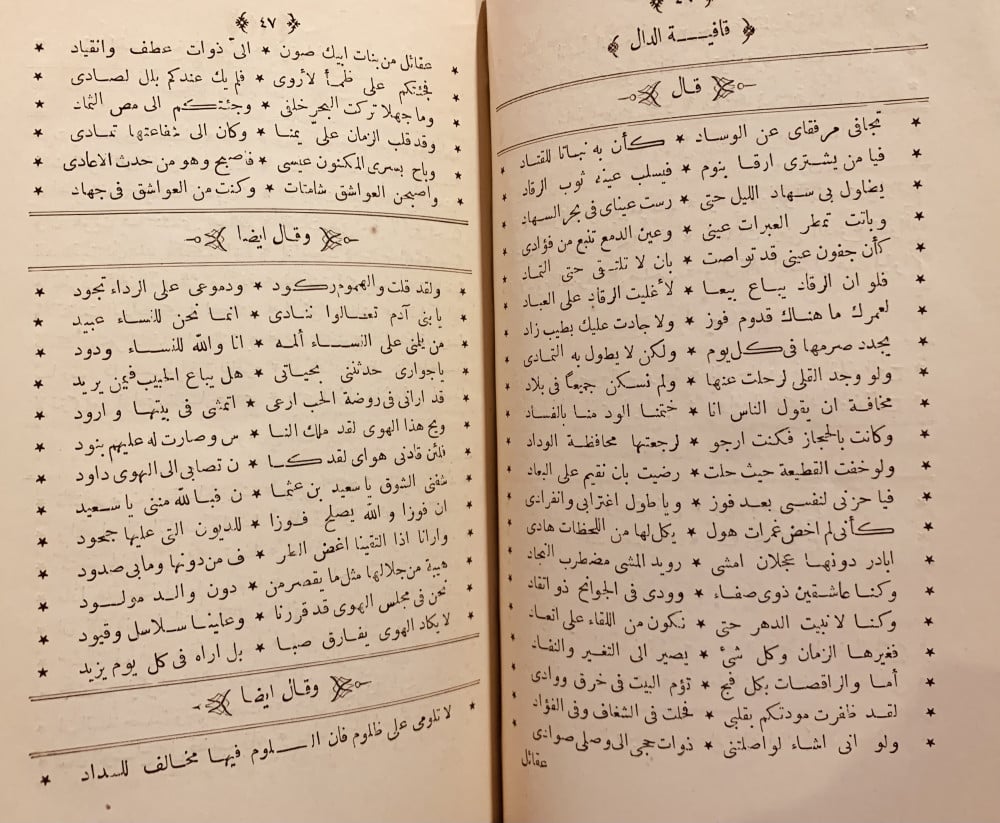 قافيــــة الدال
قال
تجافى مرفقاى عن الوساد * كأن به نباتا للقتاد
فيا من يشترى ارقا بنوم * فيسلب عينه ثوب الرقاد
يطاول بى سهاد الليل حتى * رست عيناى فى بحر السهاد
وباتت تمطر العبرات عينى * وعين الدمع تنبع من فؤادى
كأن جفون عينى قد تواصت * بان لا تلتـقى حتى التناد
فلو ان الرقاد يباع بيعا * لأغليت الرقاد على العباد
لعمرك ما هناك قدوم فوز * ولا جادت عليك بطيب زاد
يجدد صرمها فى كل يوم * ولكن لا يطول به التمادى
ولو وجد القلى لرحلت عنها * ولم نسكن جميعاً فى بلاد
مخافة ان يقول الناس انا * ختمنا الود منا بالفساد
وكانت بالحجاز فكنت ارجو * لرجعتها محافظة الوداد
ولو خفت القطيعة حيث حلت * رضيت بان نقيم على البعاد
فيا حزنى لنفسى بعد فوز * ويا طول اغترابى وانفرادى
كأنى لم اخض غمرات هول * يكل لها من اللحظات هادى
ابادر دونها عجلان امشى * رويد المشى مضطرب النجاد
وكنا عاشقين ذوى صفاء * وودى فى الجوانح ذو اتقاد
وكنا لا نبيت الدهر حتى * نكون من اللقاء على اتعاد
فغيرها الزمان وكل شئ * يصير الى التغير والنفاد
أما والراقصات بكل فج * تؤم البيت فى خرق ووادى
لقد ظفرت مودتكم بقلبى * فحلت فى الشغاف وفى الفؤاد
ولو انى اشاء لواصلتنى * ذوات حجى الى وصلى صوادى
عقائل
٤٧
عقائل من بنات ابيك صون * الىّ ذوات عطف وانقياد
فجئتكم على ظمأ لأروى * فلم يك عندكم بلل لصادى
وما جهلا تركت البحر خلفى * وجئتكم الى مص الثماد
وقد قلب الزمان علىّ يمنا * وكان الى شفاعتها تمادى
وباح بسرى المكنون عيسى * فاصبح وهو من حدث الاعادى
واصبحن العواشق شامتات * وكنت من العواشق فى جهاد
وقال ايضا
ولقد قلت والهموم ركود * ودموعى على الرداء تجود
يا بنى آدم تعـالوا ننادى * انما نحن للنساء عبيد
من يلمنى على النساء ألمه * انا والله للنساء ودود
يا جوارى حدثننى بحياتى * هل يباع الحبيب فيمن يريد
قد ارانى فى روضة الحب ارعى * اتمشى فى بيتها وارود
ويح هذا الهوى لقد ملك النا * س وصارت له عليهم بنود
فلئن قادنى هواى لقد كـا * ن تصابى الى الهوى داود
شفنى الشوق يا سعيد بن عثما * ن فبا لله مننى يا سعيد
ان فوزا والله يصلح فوزا * للديون التى عليها جمحود
وارانا اذا التقينا اغض الطر * ف من دونها ومابى صدود
هيبة من جلالها مثل ما يقصر من * دون والـد مولـود
نحن فى مجلس الهوى قد قررنا * وعلينا سلاسل وقيود
لا يكاد الهوى يفارق صبا * بل اراه فى كل يوم يزيد
وقال ايضا
لا تلومى على ظلوم فان الـلوم فيها مخالف للسداد